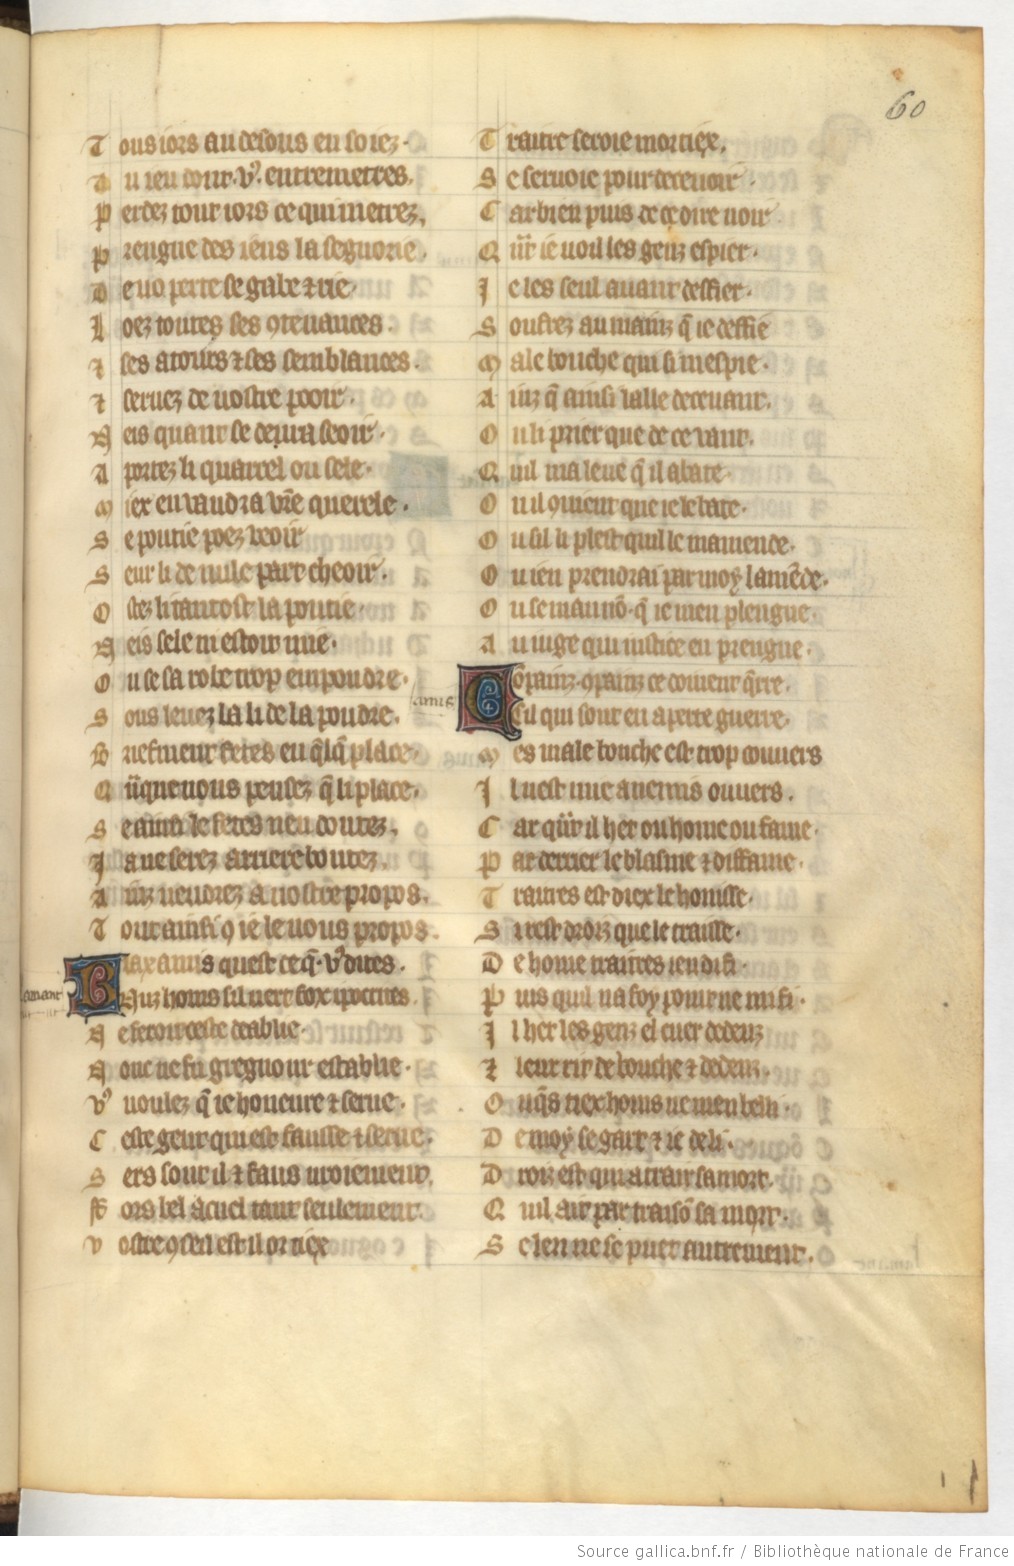 60
Tous iors au desous en soiez.
Au ieu dont .v9. entremetres.
Perdez tour iors ce qui metrez,
Prengue des iens la segnorie.
De uo perte se gabe ⁊ rie.
Loez toutes ses 9tenances.
⁊ ses atours ⁊ ses semblances.
⁊ seruez de uostre pooir.
Neis quant se deura seoir.
Aportez li quarrel ou sele.
Miex en vaudra vr̄e querele.
Se poutie poez veoir
Seur li de nule part cheoir.
Ostez li tantost la poutie.
Neis sele ni estoit mie.
Ou se sa robe trop enpoudre.
Sous leuez la li de la poudre.
Briefment fetes en q̄lq̄ place.
Q̄nque uous pensez q̄ li place.
Se ainsi le fetes nen doutez.
Ja ne serez arriere boutez.
Ainz uendrez a uostre propos.
Tout ainsi 9 ie le uous propos.
lamant
Biax amis quest ce q̄ .v9 dites.
Nus homs sil nert fox ypocrites
Ne feroit ceste deablie.
Nonc ne fu gregnour establie.
V9 uoulez q̄ ie honeure ⁊ serue.
Ceste gent qui est fausse ⁊ serue.
Sers sont il ⁊ faus uroiement.
Fors bel acueil tant seulement.
Vostre 9seil est il or tiex
Traitre seroie mortiex.
Se seruoie pour deceuoir.
Car bien puis de ce dire uoir
Qn̄t ie uoil les genz espier.
Je les seul auant deffier.
Soufrez au mainz q̄ ie deffie
Male bouche qui si mespie.
Ainz q̄ ainsi laille deceuant.
Ou li prier que de ce vant.
Quil ma leue q̄ il abate.
Ou il 9uient que ie le bate.
Ou sil li plest quil le mamende.
Ou ien prendrai par moy lamēde.
Ou se mannō. q̄ ie men plengne.
A iuge qui iustice en prengne.
lamis
Cōpainz .9painz ce doiuent q̄rre.
Cil qui sont en aperte guerre.
Mes male bouche est trop couuers
Il nest mie anemis ouuers.
Car qn̄t il het ou home ou fame.
Par derrier le blasme ⁊ diffame.
Traitres est diex le honisse.
Si rest droiz que le traisse.
De home traitres ien di fi.
Puis quil na foy point ne mi fi.
Il het les genz el cuer dedenz
⁊ leur rit de bouche ⁊ de denz.
Onq̄s tiex homs ne men beli.
De moy se gart ⁊ ie de li.
Droiz est qui a trair samort.
Quil ait par traisō sa mort.
Se len ne se puet autrement.
Source gallica.bnf.fr / Bibliothèque nationale de France